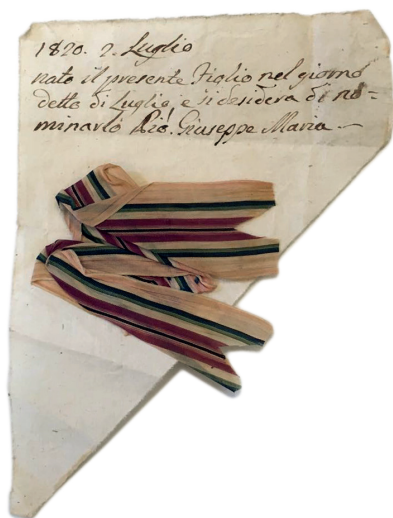 1820. 2. Luglio
nato il presente Figlio nel giorno
detto di Luglio, e si desidera di no=
minarlo Pio. Giuseppe Maria